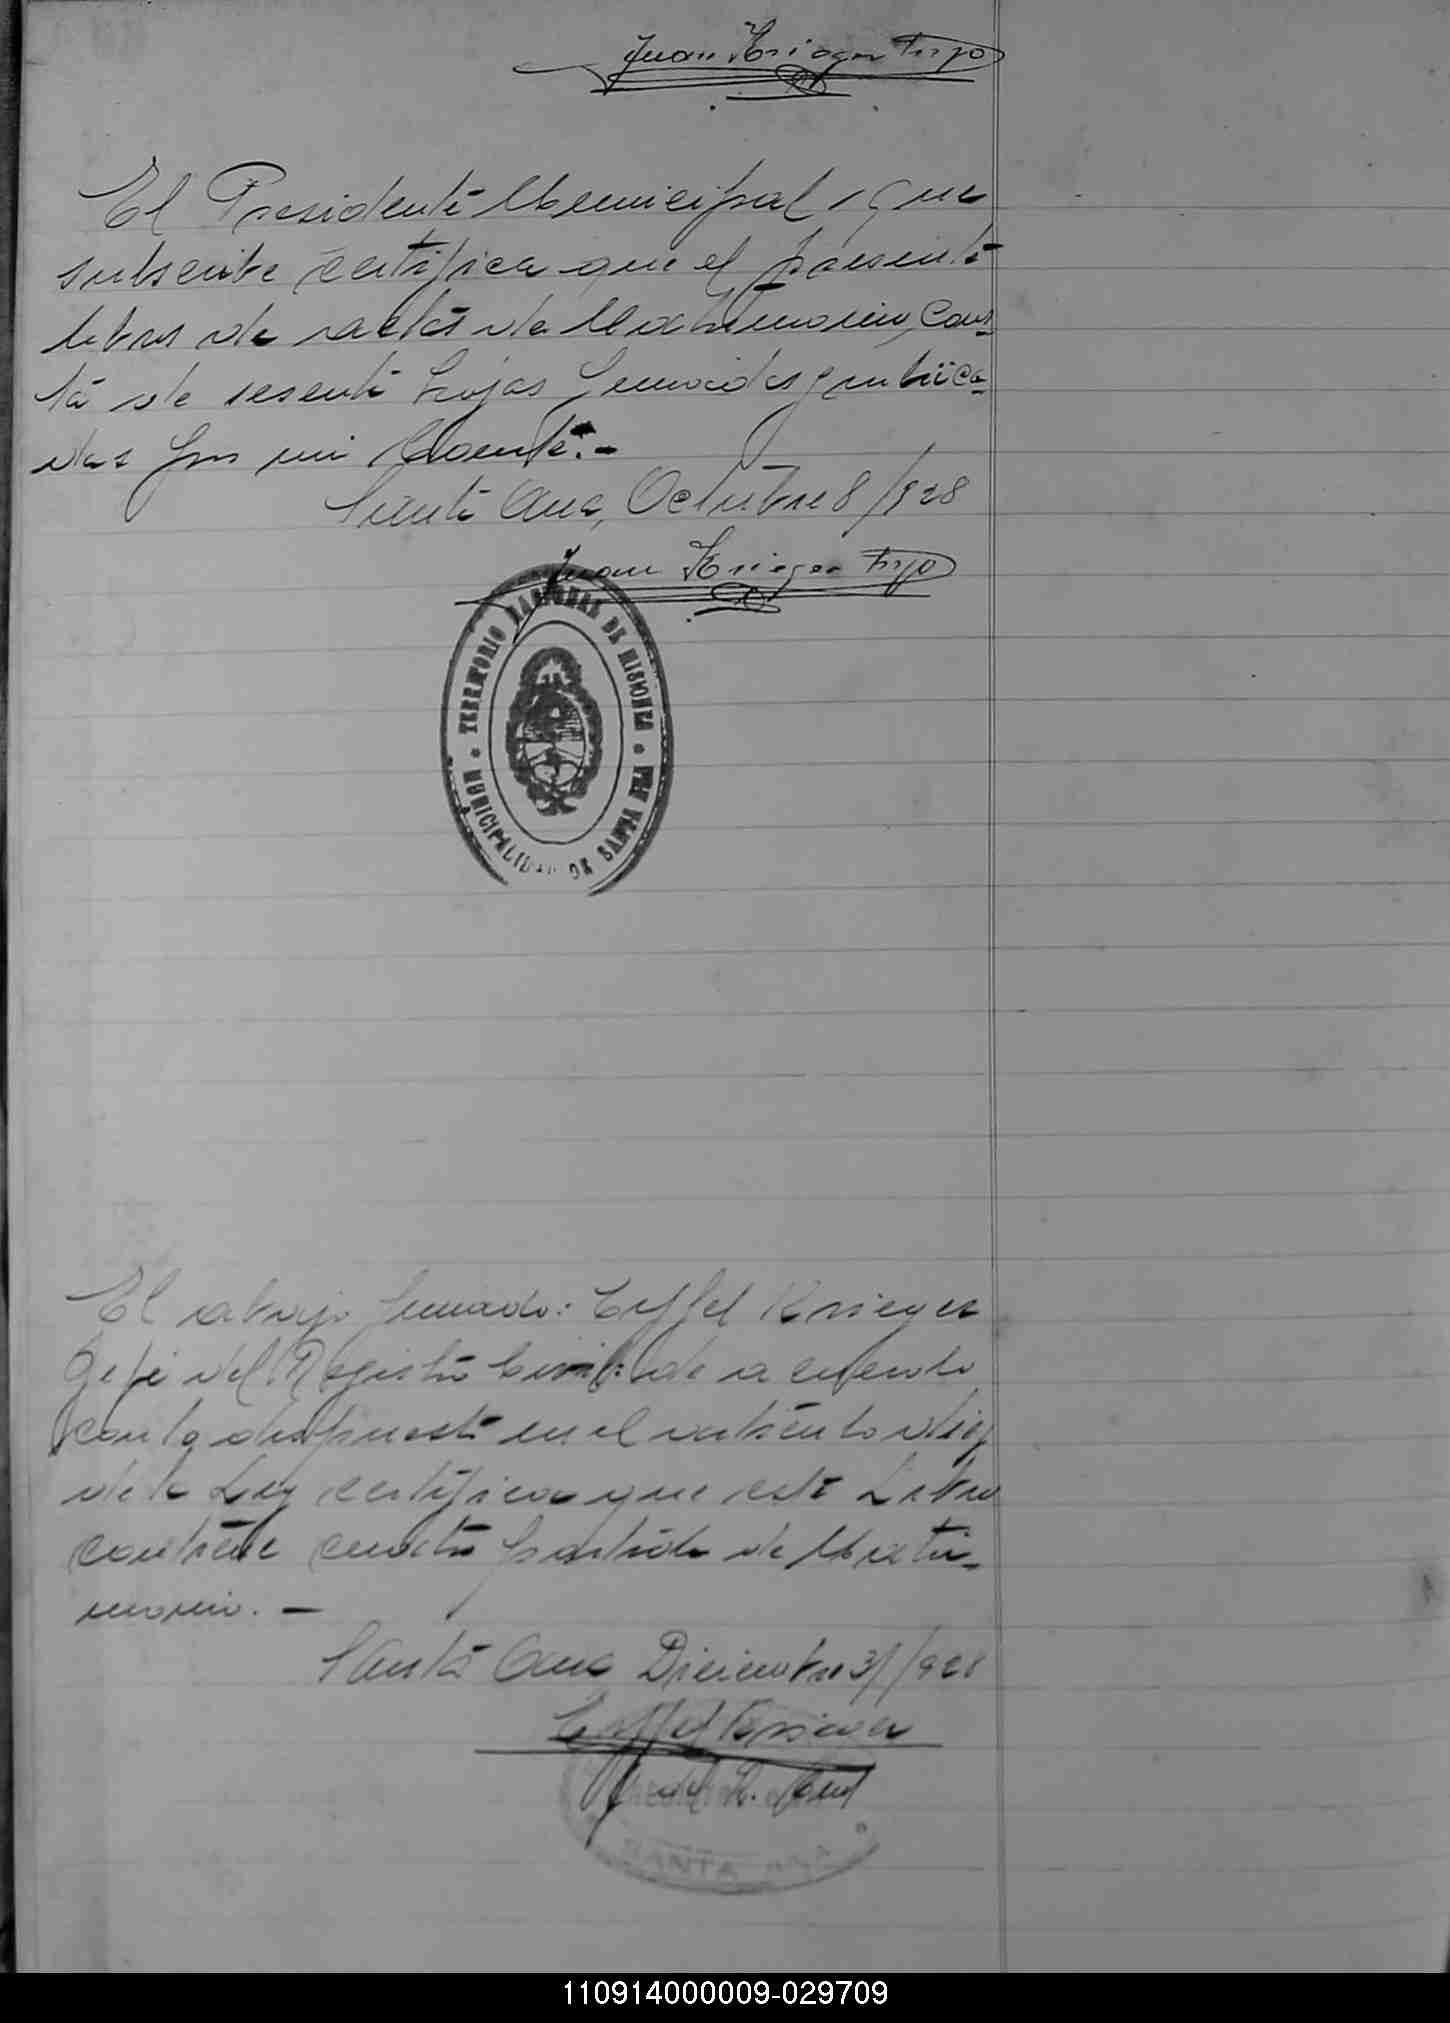 Juan Krieger hijo
El Presidente Municipal, que
subscribe certifica que el presente
libro de actas de Matrimonio, cons-
ta de sesenta hojas firmadas y rubrica-
das por mi
Santa Ana, Octubre 8/928
Juan Krieger hijo
TERRITORIO NACIONAL DE MISIONES
MUNICIPALIDAD DE SANTA ANA
El abajo firmado: Eiffel Krieger
Jefe del Registro Civil: de acuerdo
con lo dispuesto en el artículo diez
de la Ley certifica que este Libro
contiene cuatro partidas de Matri-
monio. —
Santa Ana Diciembre 31/928
Eiffel Krieger
J. del R. Civil
SANTA ANA
110914000009-029709